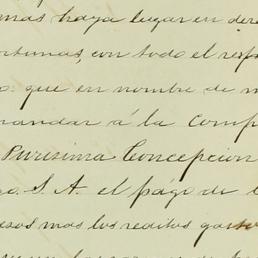 mas haya lugar en dere
ortunas, con todo el resp
o: que en nombre de m
mandar á la Comp
Purisima Concepcion
go. S. A. el pago de l
esos mas los reditos gasto